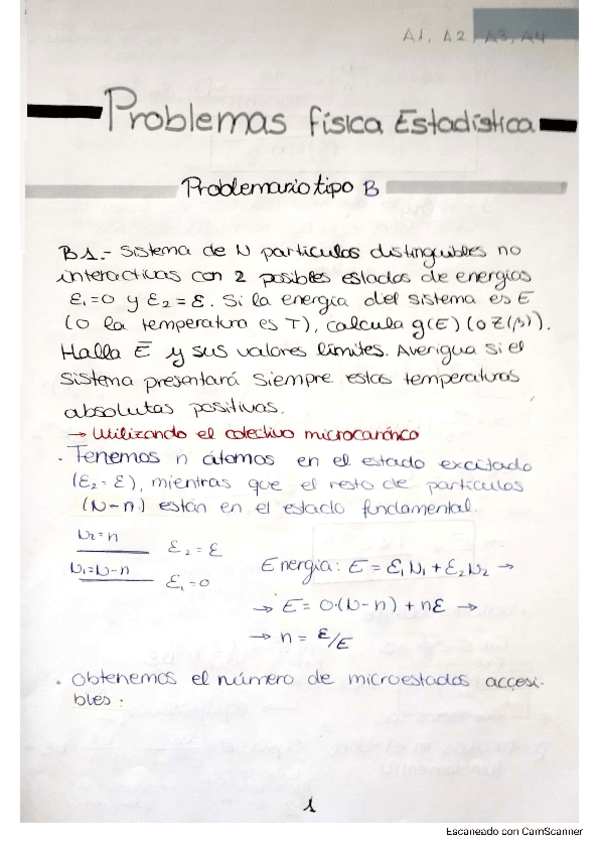 A1, A2, A3, A4
Problemas física Estadística
Problemario tipo B
B1.- Sistema de N partículas distinguibles no
interactivas con 2 posibles estados de energías
ε₁=0 y ε₂=ε. Si la energía del sistema es E
(o la temperatura es T), calcula g(E) (o Z(β)).
Halla E̅ y sus valores límites. Averigua si el
sistema presentará siempre estas temperaturas
absolutas positivas.
→ Utilizando el colectivo microcanónico
. Tenemos n átomos en el estado excitado
(ε₂=ε), mientras que el resto de partículas
(N-n) están en el estado fundamental.
N₂=n ε₂=ε
N₁=N-n ε₁=0
Energía: E = ε₁N₁+ε₂N₂ →
→ E = 0·(N-n) + nε →
→ n = ε/E
. Obtenemos el número de microestados accesi-
bles:
1
Escaneado con CamScanner